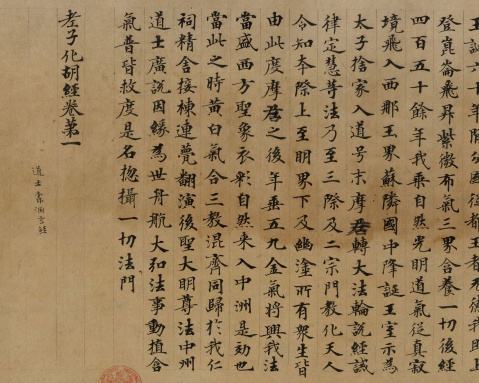 登崑崙飛昇紫微布氣三界含養一切後經
四百五十餘年我乘自然光明道氣從真寂
境飛入西那玉界蘇隣國中降誕王室示為
太子捨家入道号末摩尼轉大法輪說經誡
律定慧等法乃至三際及二宗門教化天人
令知本際上至明界下及幽塗所有衆生皆
由此度摩尼之後年垂五九金氣將興我法
當盛西方聖象衣彩自然來入中洲是効也
當此之時黃白氣合三教混齊同歸於我仁
祠精舍接棟連甍翻演後聖大明尊法中州
道士廣說因緣為世舟航大弘法事動植含
氣普皆救度是名捴攝一切法門
老子化胡經卷第一
道士索洞玄經